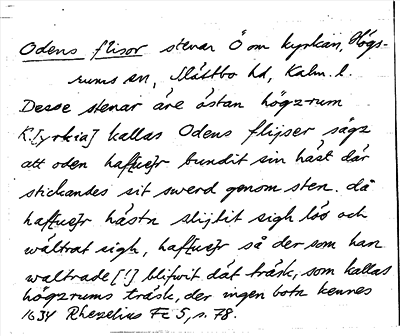 Odens flisor stenar Ö om kyrkan, Högs-
rums sn, Slättbo hd, Kalm. l.
Desse stenar äre östan högz-rum
K[yrkia] kallas Odens flijser sägz
att oden haf[ue]r bundit sin häst där
stickandes sit swerd genom sten. då
haf[ue]r hästn slijtit sigh lös och
wältrat sigh, haf[ue]r så der som han
waltrade [!] blifwit dät träsk, som kallas
högzrums träsk, der ingen botn kennes
1634 Rhezelius Fc 5, s. 78.